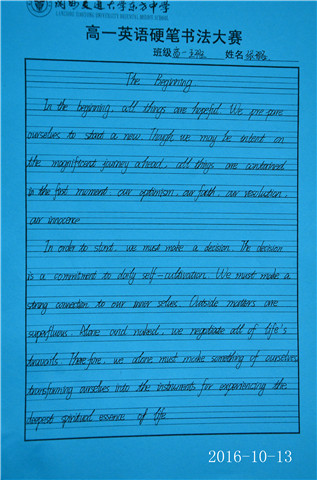 陕西交通大学东方中学
高一英语硬笔书法大赛
班级 高一 姓名
The Beginning
In the beginning, all things are hopeful. We prepare
ourselves to start a new. Though we may be intent on
the magnificent journey ahead, all things are contained
in the first moment: our optimism, our faith, our resolution,
our innocence.
In order to start, we must make a decision. The decision
is a commitment to daily self-cultivation. We must make a
strong connection to our inner selves. Outside matters are
superfluous. Alone and naked, we negotiate all of life's
travails. Therefore, we alone must make something of ourselves,
transforming ourselves into the instruments for experiencing the
deepest spiritual essence of life.
2016-10-13